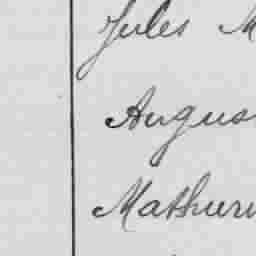 Jules M
Augus
Mathuri